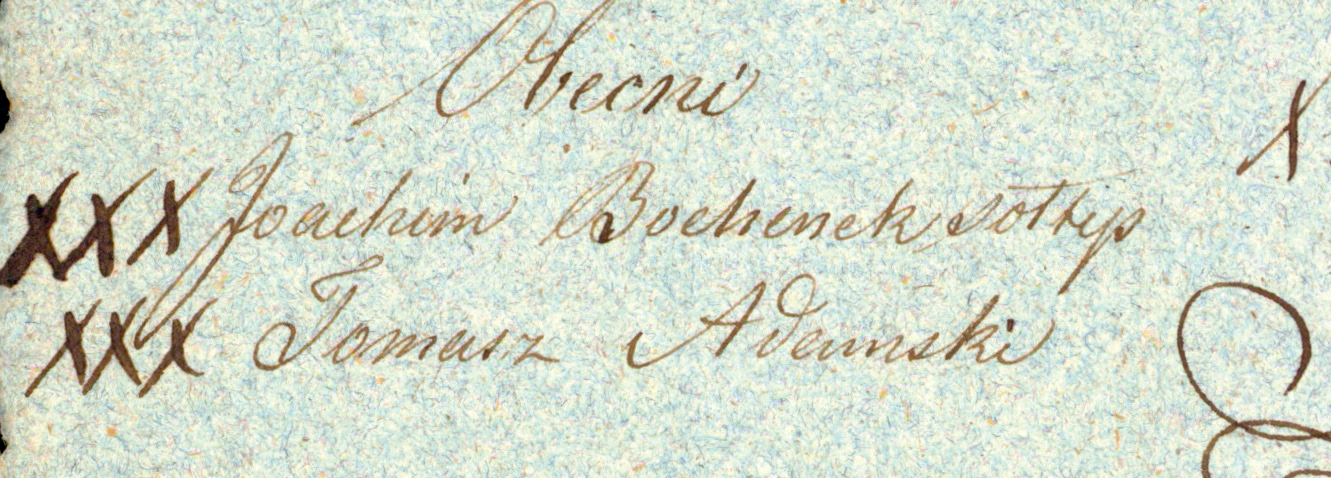 Obecni
XXX Joachim Bochenek sołtys X
XXX Tomasz Adamski